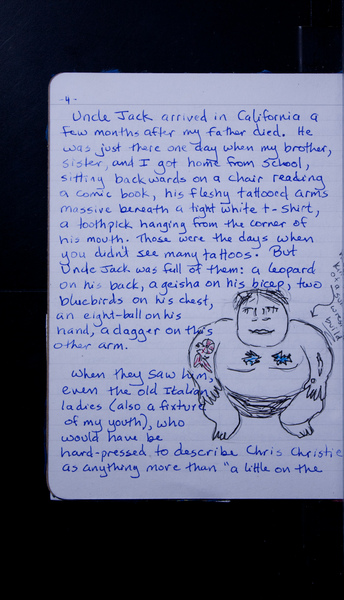 -4-
Uncle Jack arrived in California a
few months after my father died. He
was just there one day when my brother,
sister, and I got home from school,
sitting backwards on a chair reading
a comic book, his fleshy tattooed arms
massive beneath a tight white t-shirt,
a toothpick hanging from the corner of
his mouth. Those were the days when
you didn't see many tattoos. But
Uncle Jack was full of them: a leopard
on his back, a geisha on his bicep, two
bluebirds on his chest,
an eight-ball on his
hand, a dagger on this
other arm.
When they saw him,
even the old Italian
ladies (also a fixture
of my youth), who
would have be
hard-pressed to describe Chris Christie
as anything more than "a little on the
build